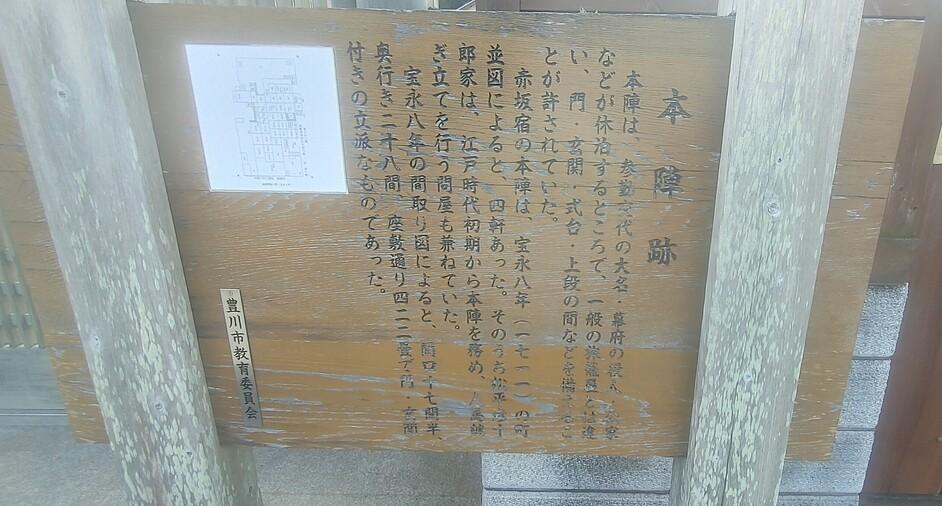 本陣跡
本陣は、参勤交代の大名・幕府の役人・公家
などが休泊するところで、一般の旅籠屋とは違
い、門・玄関・式台・上段の間などを備えるこ
とが許されていた。
赤坂宿の本陣は、宝永八年(一七一一)の町
並図によると、四軒あった。そのうち松平彦十
郎家は、江戸時代初期から本陣を務め、人馬継
ぎ立てを行う問屋も兼ねていた。
宝永八年の間取り図によると、間口十七間半、
奥行き二十八間、座敷通り四二二畳で門・玄関
付きの立派なものであった。
豊川市教育委員会